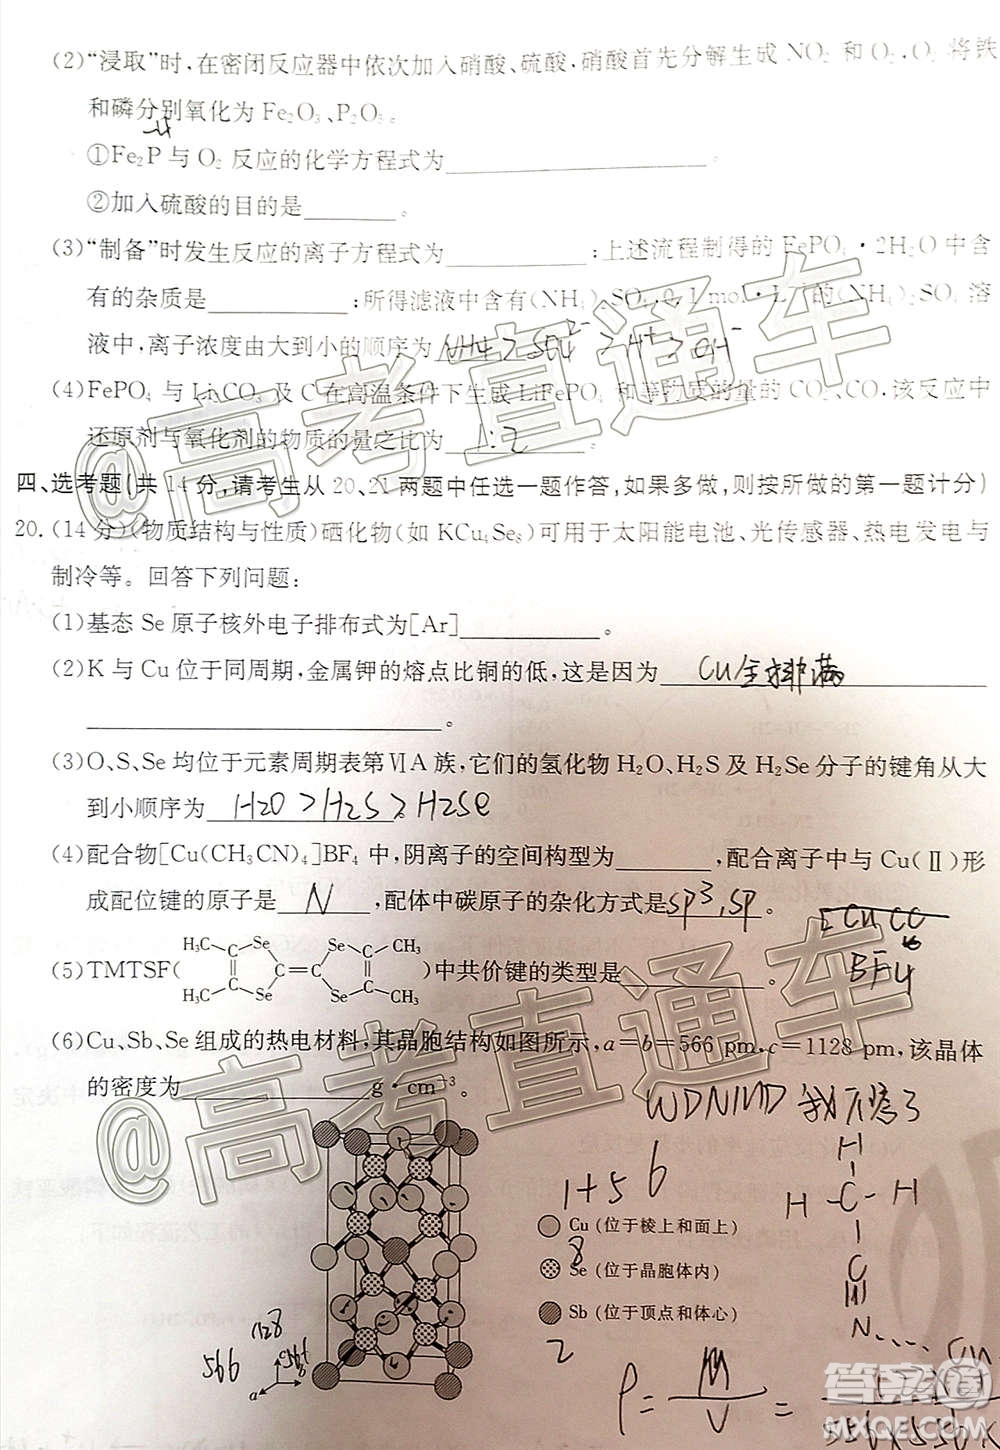 (2)“浸取”时,在密闭反应器中依次加入硝酸、硫酸,硝酸首先分解生成 NO₂ 和 O₂,O₂ 将铁
和磷分别氧化为 Fe₂O₃、P₂O₅。
①Fe₂P 与 O₂ 反应的化学方程式为
②加入硫酸的目的是 。
(3)“制备”时发生反应的离子方程式为 ;上述流程制得的 FePO₄·2H₂O 中含
有的杂质是 ;所得滤液中含有(NH₄)₂SO₄,0.1 mol·L⁻¹的(NH₄)₂SO₄ 溶
液中,离子浓度由大到小的顺序为 NH4 > SO4²⁻ > H⁺ > OH⁻
(4)FePO₄ 与 Li₂CO₃ 及 C 在高温条件下生成 LiFePO₄ 和等物质的量的 CO₂、CO,该反应中
还原剂与氧化剂的物质的量之比为 1:2 。
四、选考题(共 14 分,请考生从 20、21 两题中任选一题作答,如果多做,则按所做的第一题计分)
20. (14 分)(物质结构与性质)硒化物(如 KCu₄Se₈)可用于太阳能电池、光传感器、热电发电与
制冷等。回答下列问题:
(1)基态 Se 原子核外电子排布式为[Ar] 。
(2)K 与 Cu 位于同周期,金属钾的熔点比铜的低,这是因为 Cu全排满
。
(3)O、S、Se 均位于元素周期表第ⅥA 族,它们的氢化物 H₂O、H₂S 及 H₂Se 分子的键角从大
到小顺序为 H2O > H2S > H2Se
(4)配合物[Cu(CH₃CN)₄]BF₄ 中,阴离子的空间构型为 ,配合离子中与 Cu(Ⅱ)形
成配位键的原子是 N ,配体中碳原子的杂化方式是 sp³,sp 。
BF4
(5)TMTSF( H₃C Se Se CH₃ H₃C Se Se CH₃ )中共价键的类型是 。
(6)Cu、Sb、Se 组成的热电材料,其晶胞结构如图所示,a=b=566 pm,c=1128 pm,该晶体
的密度为 g·cm⁻³。
WDNMD 我不写了
1+5 6
Cu (位于棱上和面上)
8
Se (位于晶胞体内)
Sb (位于顶点和体心)
2
H
H—C—H
C
N
1128
566
566
a
b
ρ = M/V =
@高考直通车
@高考直通车
答案圈
MXQE.COM